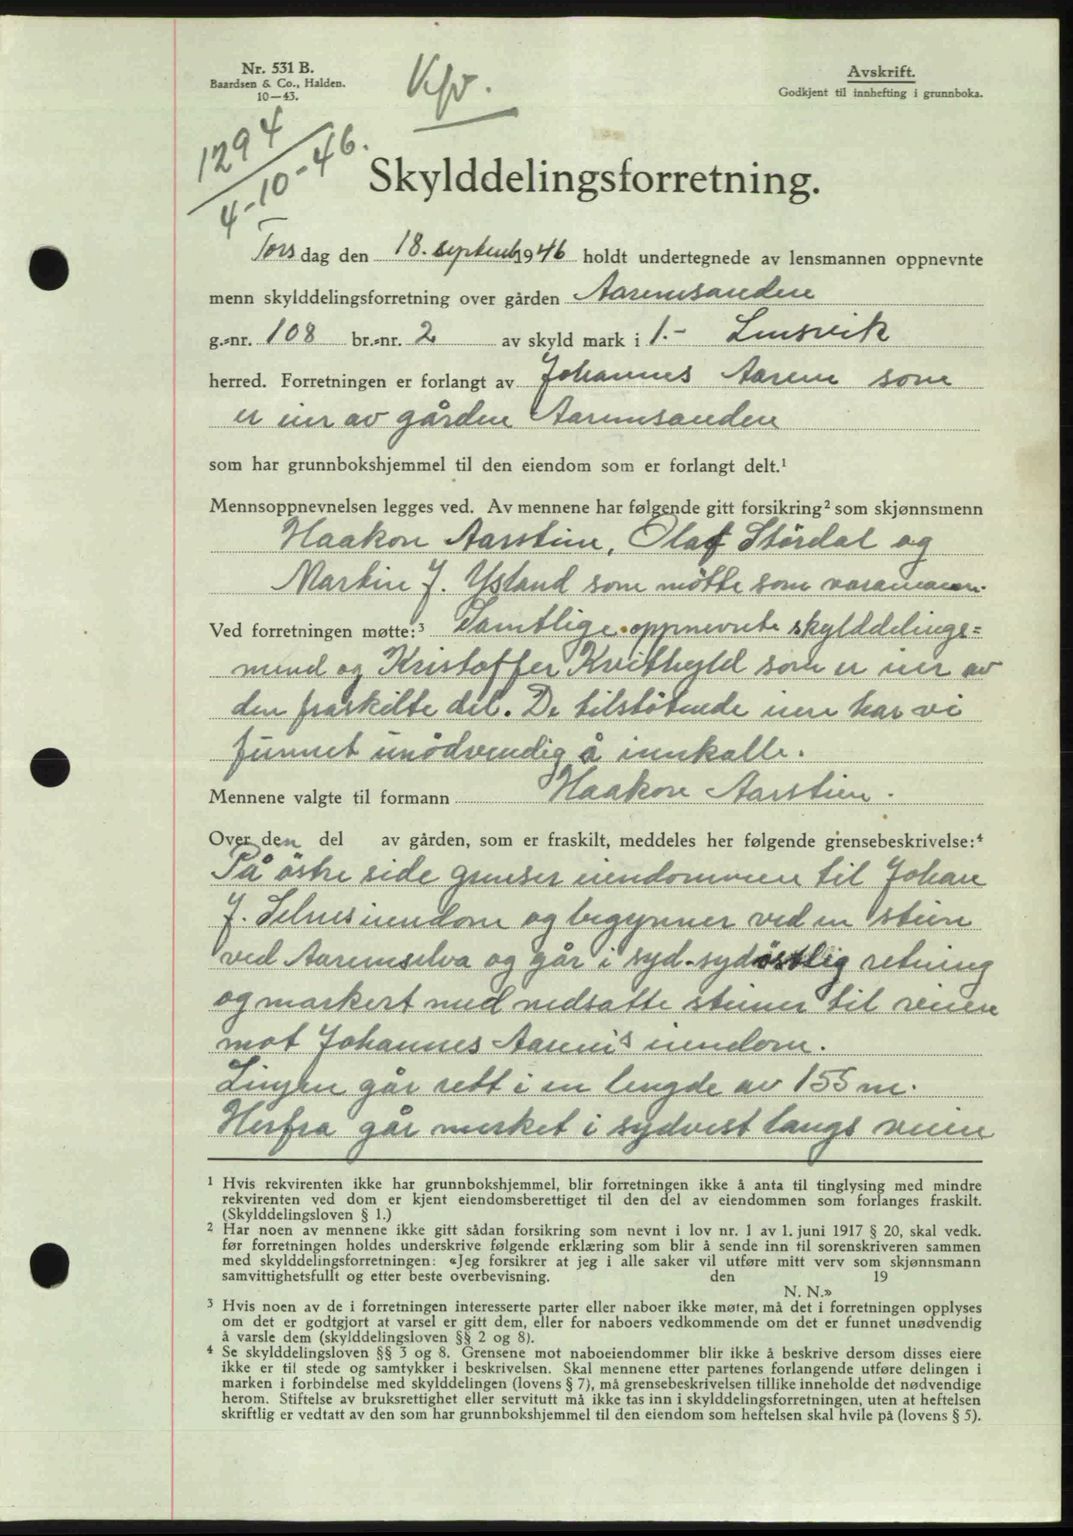 Nr. 531 B.
Baardsen & Co., Halden.
10—43.
Avskrift.
Godkjent til innhefting i grunnboka.
1294
4-10-46.
Skylddelingsforretning.
Tors dag den 18. septemb 1946 holdt undertegnede av lensmannen oppnevnte
menn skylddelingsforretning over gården Aaremsanden
g.-nr. 108 br.-nr. 2 av skyld mark i 1.- Lensvik
herred. Forretningen er forlangt av Johannes Aarem som
er eier av gården Aaremsanden
som har grunnbokshjemmel til den eiendom som er forlangt delt.¹
Mennsoppnevnelsen legges ved. Av mennene har følgende gitt forsikring² som skjønnsmenn
Haakon Aarstein, Olaf Stördal og
Martin J. Ystand som møtte som varamann.
Ved forretningen møtte:³ Samtlige oppnevnte skylddelings=
mend og Kristoffer Kvithyld som er eier av
den fraskilte del. De tilstøtende eiere har vi
funnet unödvendig å innkalle.
Mennene valgte til formann Haakon Aarstein.
Over den del av gården, som er fraskilt, meddeles her følgende grensebeskrivelse:⁴
På östre side grenser eiendommen til Johan
J. Selnes eiendom og begynner ved en stein
ved Aaremselva og går i syd-sydöstlig retning
og markert med nedsatte steiner til veien
mot Johannes Aarem's eiendom.
Linjen går rett i en lengde av 155 m.
Herfra går merket i sydvest langs veien
¹ Hvis rekvirenten ikke har grunnbokshjemmel, blir forretningen ikke å anta til tinglysing med mindre
rekvirenten ved dom er kjent eiendomsberettiget til den del av eiendommen som forlanges fraskilt.
(Skylddelingsloven § 1.)
² Har noen av mennene ikke gitt sådan forsikring som nevnt i lov nr. 1 av 1. juni 1917 § 20, skal vedk.
før forretningen holdes underskrive følgende erklæring som blir å sende inn til sorenskriveren sammen
med skylddelingsforretningen: «Jeg forsikrer at jeg i alle saker vil utføre mitt verv som skjønnsmann
samvittighetsfullt og etter beste overbevisning. den 19
N. N.»
³ Hvis noen av de i forretningen interesserte parter eller naboer ikke møter, må det i forretningen opplyses
om det er godtgjort at varsel er gitt dem, eller for naboers vedkommende om det er funnet unødvendig
å varsle dem (skylddelingsloven §§ 2 og 8).
⁴ Se skylddelingsloven §§ 3 og 8. Grensene mot naboeiendommer blir ikke å beskrive dersom disses eiere
ikke er til stede og samtykker i beskrivelsen. Skal mennene etter partenes forlangende utføre delingen i
marken i forbindelse med skylddelingen (lovens § 7), må grensebeskrivelsen tillike inneholde det nødvendige
herom. Stiftelse av bruksrettighet eller servitutt må ikke tas inn i skylddelingsforretningen, uten at heftelsen
skriftlig er vedtatt av den som har grunnbokshjemmel til den eiendom som heftelsen skal hvile på (lovens § 5).